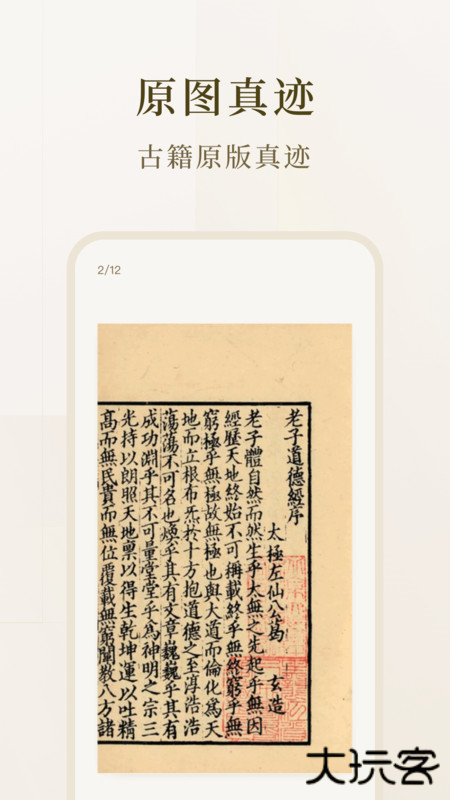 原图真迹
古籍原版真迹
2/12
老子道德經序
太極左仙公葛 玄造
老子體自然而然生乎太無之先起乎無因
經歷天地終始不可稱載終乎無終窮乎無
窮極乎無極故無極也與大道而倫化為天
地而立根布炁於十方抱道德之至淳浩浩
蕩蕩不可名也煥乎其有文章巍巍乎其有
成功淵乎其不可量堂堂乎為神明之宗三
光持以朗照天地禀以得生乾坤運以吐精
高而無民貴而無位覆載無窮闡教八方諸
大玩客